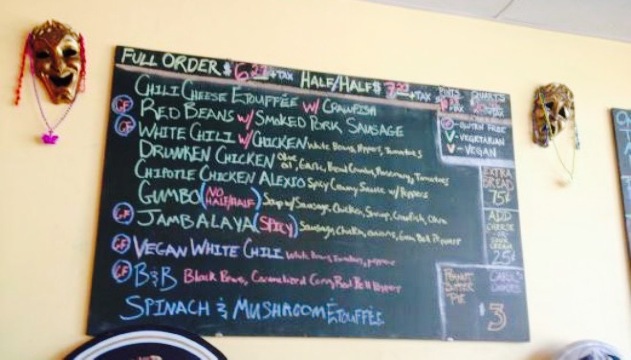 FULL ORDER $ 6 +TAX HALF/HALF $ +TAX
CHILI CHEESE ETOUFFÉE W/ CRAWFISH
GF RED BEANS W/ SMOKED PORK SAUSAGE
GF WHITE CHILI W/CHICKEN White Beans, Peppers, Tomatoes
DRUNKEN CHICKEN Olive oil, Garlic, Bread Crumbs, Rosemary, Tomatoes
CHIPOTLE CHICKEN ALEXIO Spicy Creamy Sauce w/ Peppers
GUMBO (NO HALF/HALF) Soup w/ Sausage, Chicken, Shrimp, Crawfish, Okra
GF JAMBALAYA (SPICY) Sausage, Chicken, onions, Green Bell Peppers
GF VEGAN WHITE CHILI White Beans, Tomatoes, peppers
GF B&B Black Beans, Caramelized Corn, Red Bell Pepper
SPINACH & MUSHROOM ÉTOUFFÉE
PINTS QUARTS
GF-GLUTEN FREE
V-VEGETARIAN
V-VEGAN
EXTRA
BREAD
75¢
ADD
CHEESE
OR
SOUR
CREAM
25¢
PEANUT
BUTTER
PIE
CAROL'S
COOKIES
$3